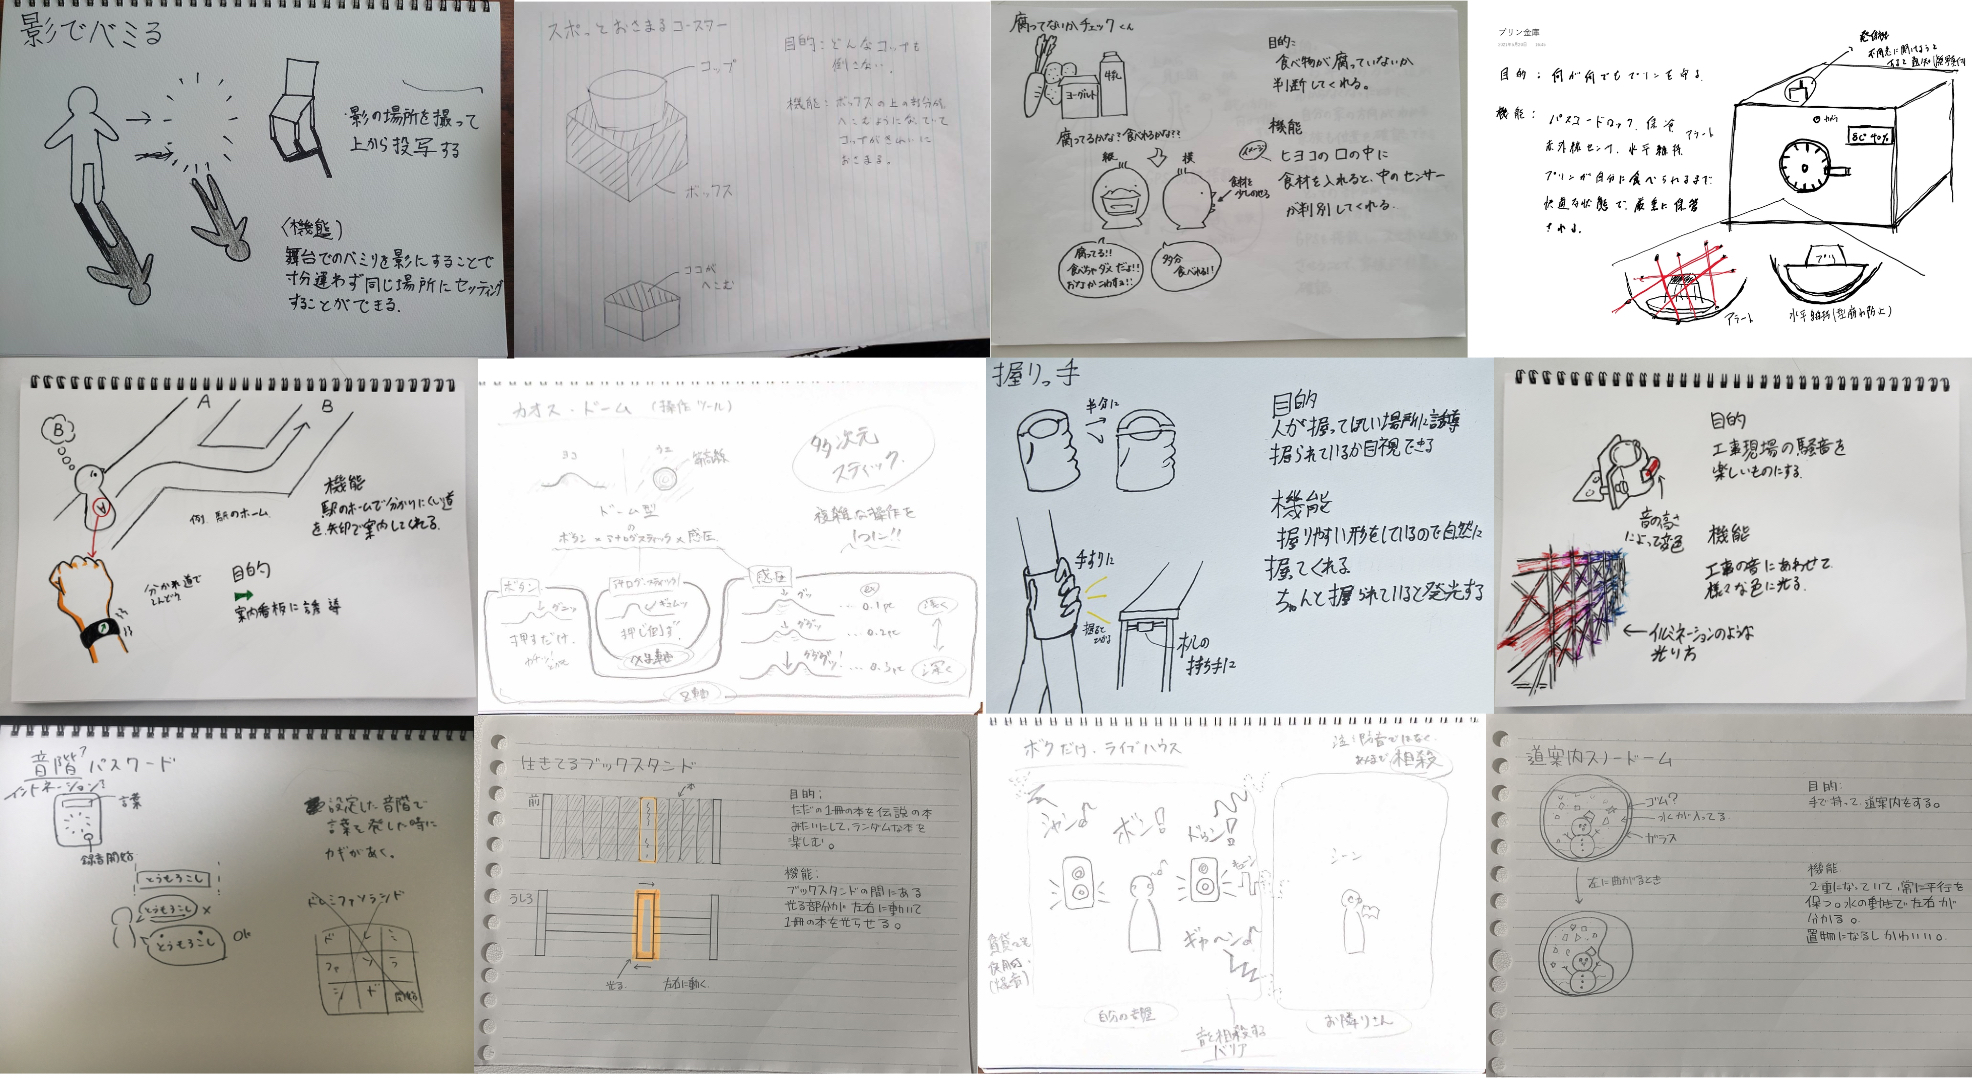 影でバミる
・影の場所を撮って
上から投写する
〈機能〉
舞台でのバミリを影にすることで
寸分違わず同じ場所にセッティング
することができる.
スポっとおさまるコースター
目的：どんなコップも
倒さない。
機能：ボックスの上の部分が
へこむようになっていて
コップがきれいに
おさまる。
コップ
ボックス
ココが
へこむ
腐ってないかチェックくん
ヨーグルト
牛乳
腐ってるかな？食べれるかな？？
縦
横
食材を
少しのせる
腐ってる!!
食べちゃダメだよ!!
おなかこわすよ!!
多分
食べれる!!
目的：
食べ物が腐っていないか
判断してくれる。
機能
ヒヨコの口の中に
食材を入れると、中のセンサー
が判別してくれる.
プリン金庫
目的：何が何でもプリンを守る.
機能：パスコードロック、保冷
赤外線センサ、水平維持
アラート
プリンが自分に食べられるまで
快適な状態で、厳重に保管
される.
カメラ
8℃ 40%
アラート
プリン
水平維持(型崩れ防止)
A
B
B
A
例. 駅のホーム
機能
駅のホームで分かりにくい道
を矢印で案内してくれる.
分かれ道で
目的
案内看板に誘導
カオス・ドーム（操作ツール）
多次元
スティック.
ヨコ
ウエ
等高線
ドーム型
の
ボタン×アナログスティック×感圧
複雑な操作を
1つに!!
ボタン
押すだけ.
アナログスティック
押し倒す.
感圧
…0.1pc
…0.2pc
…0.3pc
浅く
深く
握りっ手
半分に
手すりに
握ると
ひかる
机の
持ち手に
目的
人が握ってほしい場所に誘導
握られているか目視できる
機能
握りやすい形をしているので自然に
握ってくれる
ちゃんと握られていると発光する
目的
工事現場の騒音を
楽しいものにする.
音の高さ
によって音色
機能
工事の音にあわせて
様々な色に光る.
←イルミネーションのような
光り方
音階パスワード
イントネーション?
言葉
録音開始
とうもろこし
とうもろこし ×
とうもろこし OK
設定した音階で
言葉を発した時に
カギがあく。
ド レ ミ
ファ ソ ラ
シ ド
生きてるブックスタンド
前
本
うしろ
光る
左右に動く.
目的：
ただの1冊の本を伝説の本
みたいにして、ランダムな本を
楽しむ。
機能：
ブックスタンドの間にある
光る部分が左右に動いて
1冊の本を光らせる。
ボクだけ・ライブハウス
注）防音ではなく、
あくまで相殺
シャン♪
ボン!
ドゥン!
ギャーン♪
シーン
賃貸でも
使用可.
自分の部屋
音を相殺する
バリア
お隣りさん
道案内スノードーム
ゴム?
水が入ってる
ガラス
左に曲がるとき
目的：
手で持って、道案内をする。
機能
2重になっていて、常に平行を
保つ。水の動きで左右が
分かる。
置物になるしかわいい。